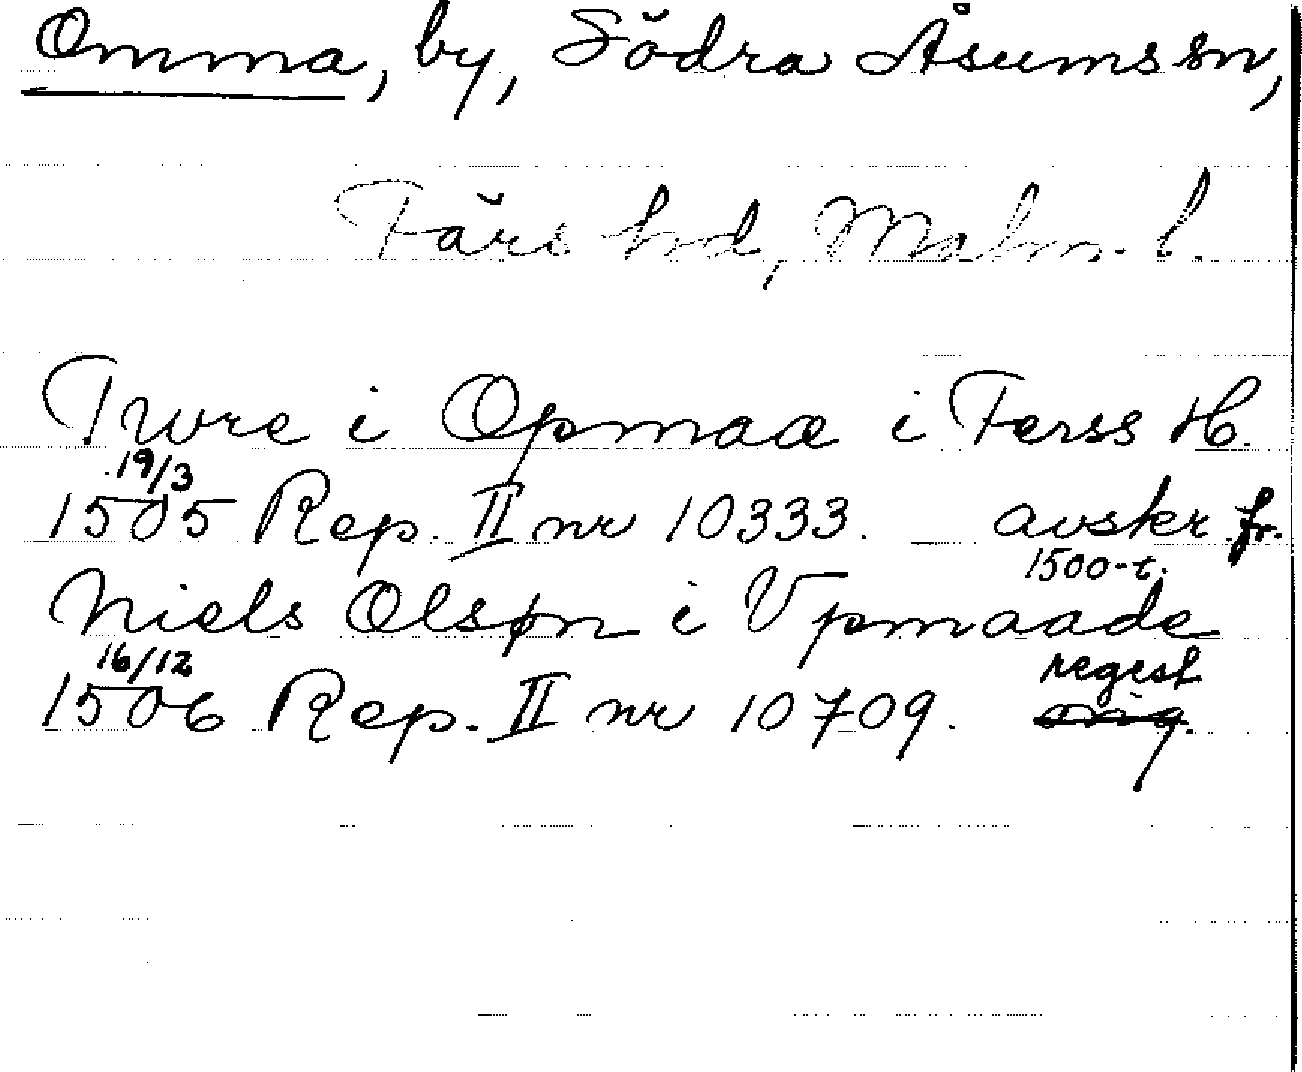 Omma, by, Södra Åsums sn,
Färs hd, Malm. l.
Twre i Opmaa i Ferss H.
19/3
1505 Rep. II nr 10333. avskr. fr.
1500-t.
Niels Olsøn i Vpmaade
16/12 regest
1506 Rep. II nr 10709. orig.